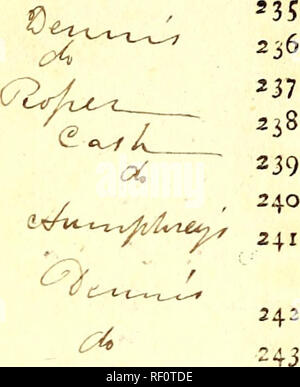 Dennis 235
do 236
Roper 237
Cash 238
do 239
240
Humphreys 241
Dennis
242
do 243
alamy
RF0TDE